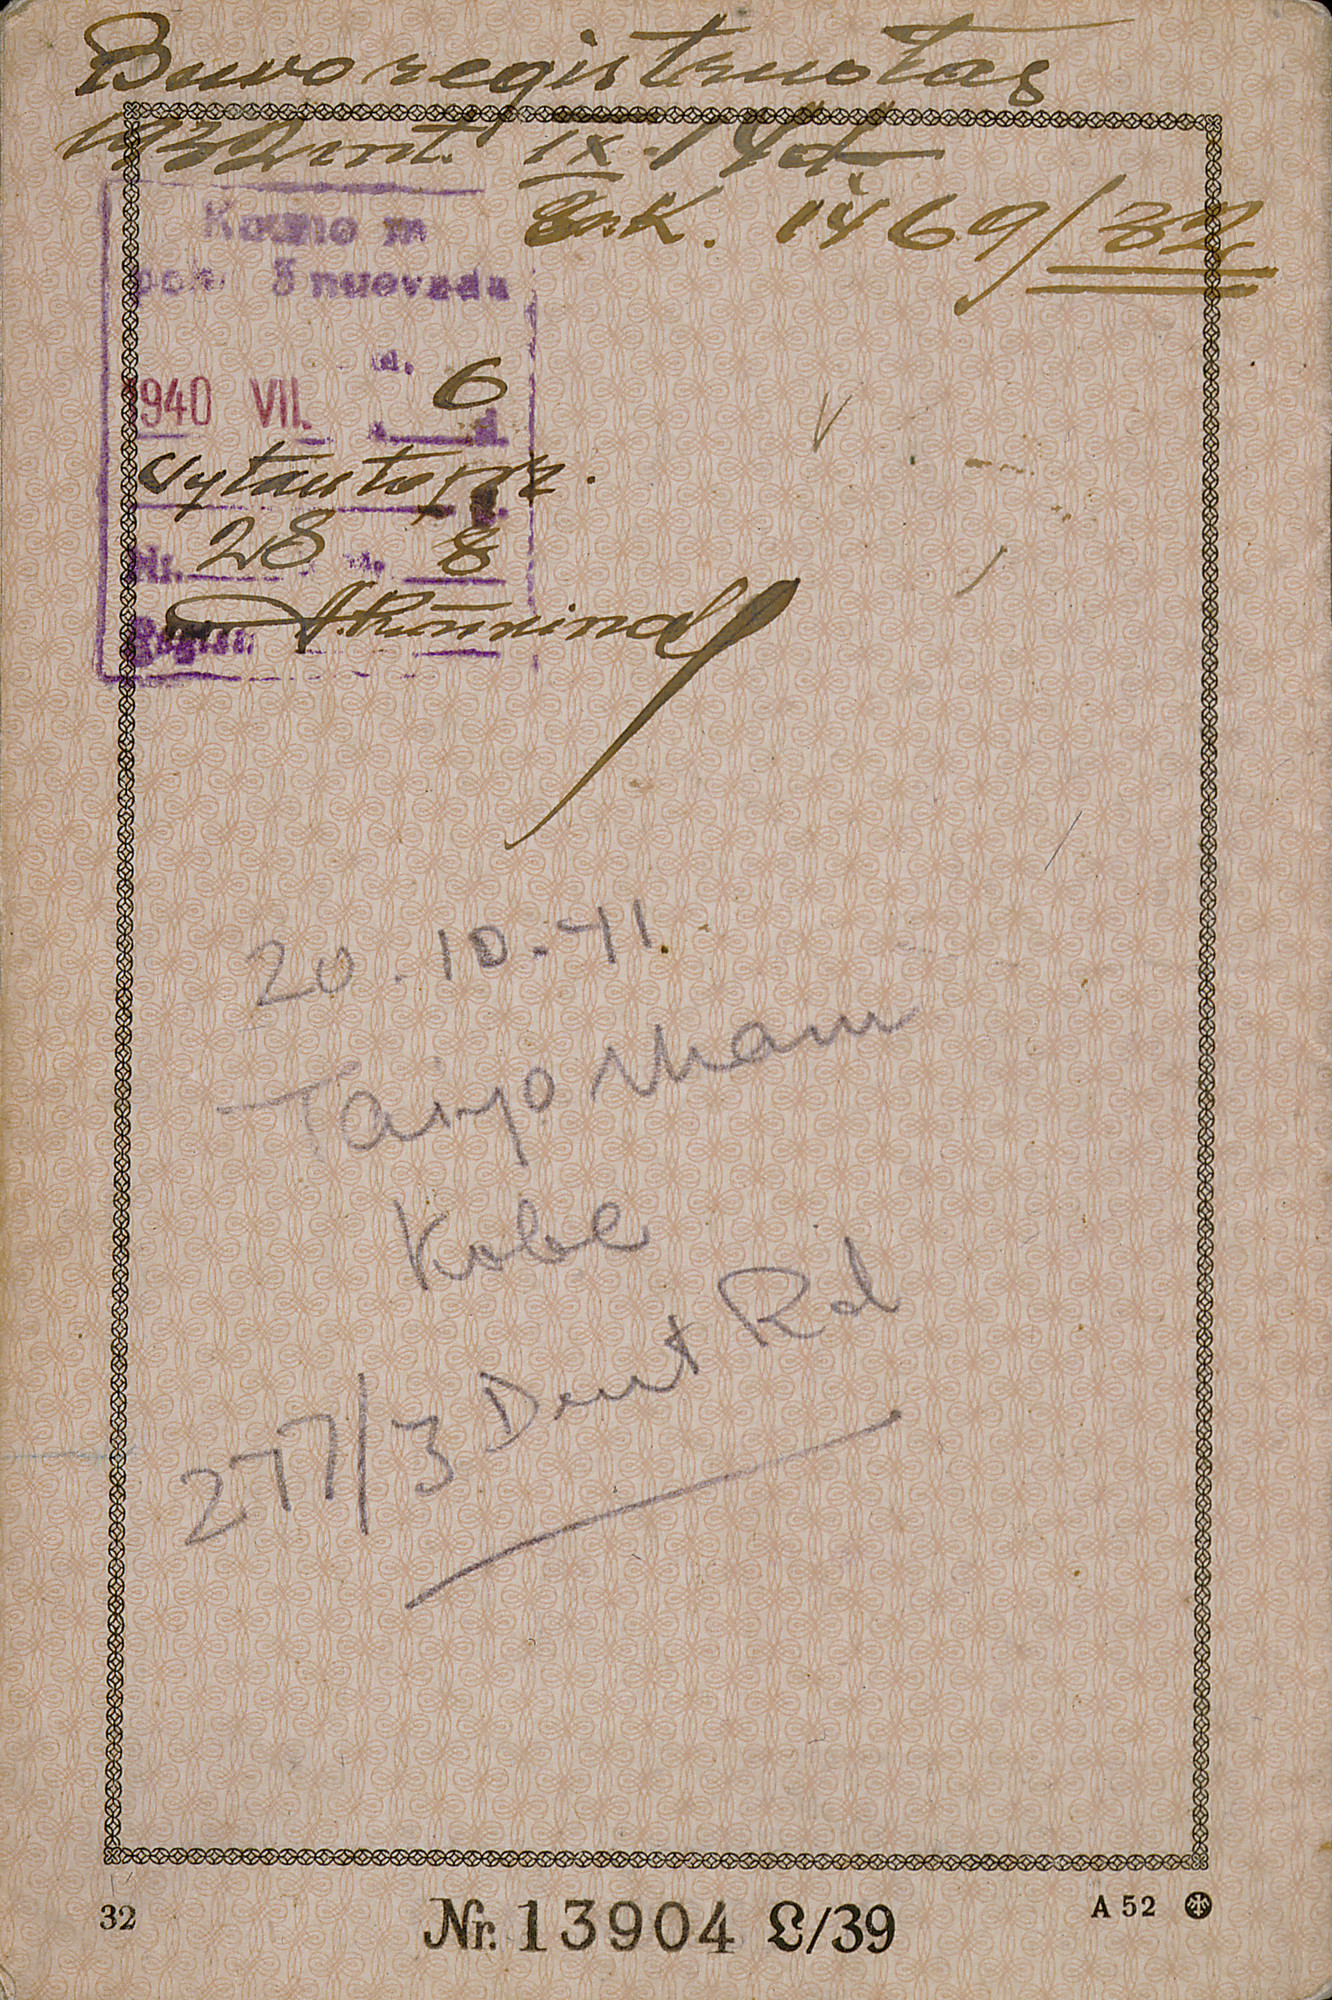 Buvo registruotas
1932 mt. IX-14 d
EnK. 1469/32
Kauno m
pol. 3 nuovada
d.
1940 VII. 6
d.
Vytauto pr.
Nr. 28 b. 8
Regist.
20.10.41
Taiyo Maru
Kobe
277/3 Dent Rd
32 Nr. 13904 L/39 A 52